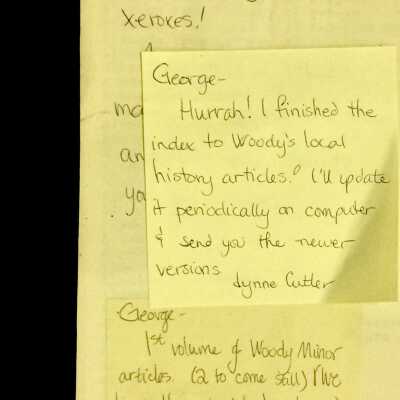 xeroxes!
ma
an
yo
George-
Hurrah! I finished the
index to Woody's local
history articles. I'll update
it periodically on computer
& send you the newer
versions
Lynne Cutler
George-
1st volume of Woody Minor
articles. (2 to come still)